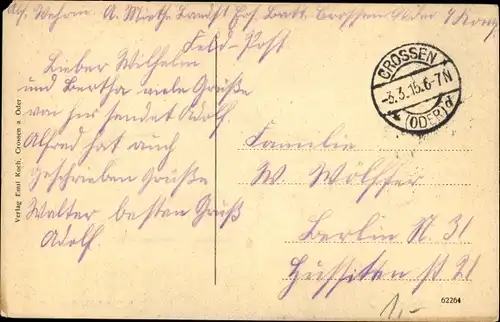 Abs. Wehrm. A. Miethe Landst. Ers. Batt. Crossen Oder
Feld-Post
Lieber Wilhelm
und Bertha viele Grüße
von hier sendet Adolf.
Alfred hat auch
geschrieben Grüße
Walter besten Gruß
Adolf.
Verlag Emil Koch, Crossen a. Oder
CROSSEN
-3.3.15.6-7N
(ODER)d
Familie
W. Wölffer
Berlin N. 31
Hussiten st 21
62264
1,-